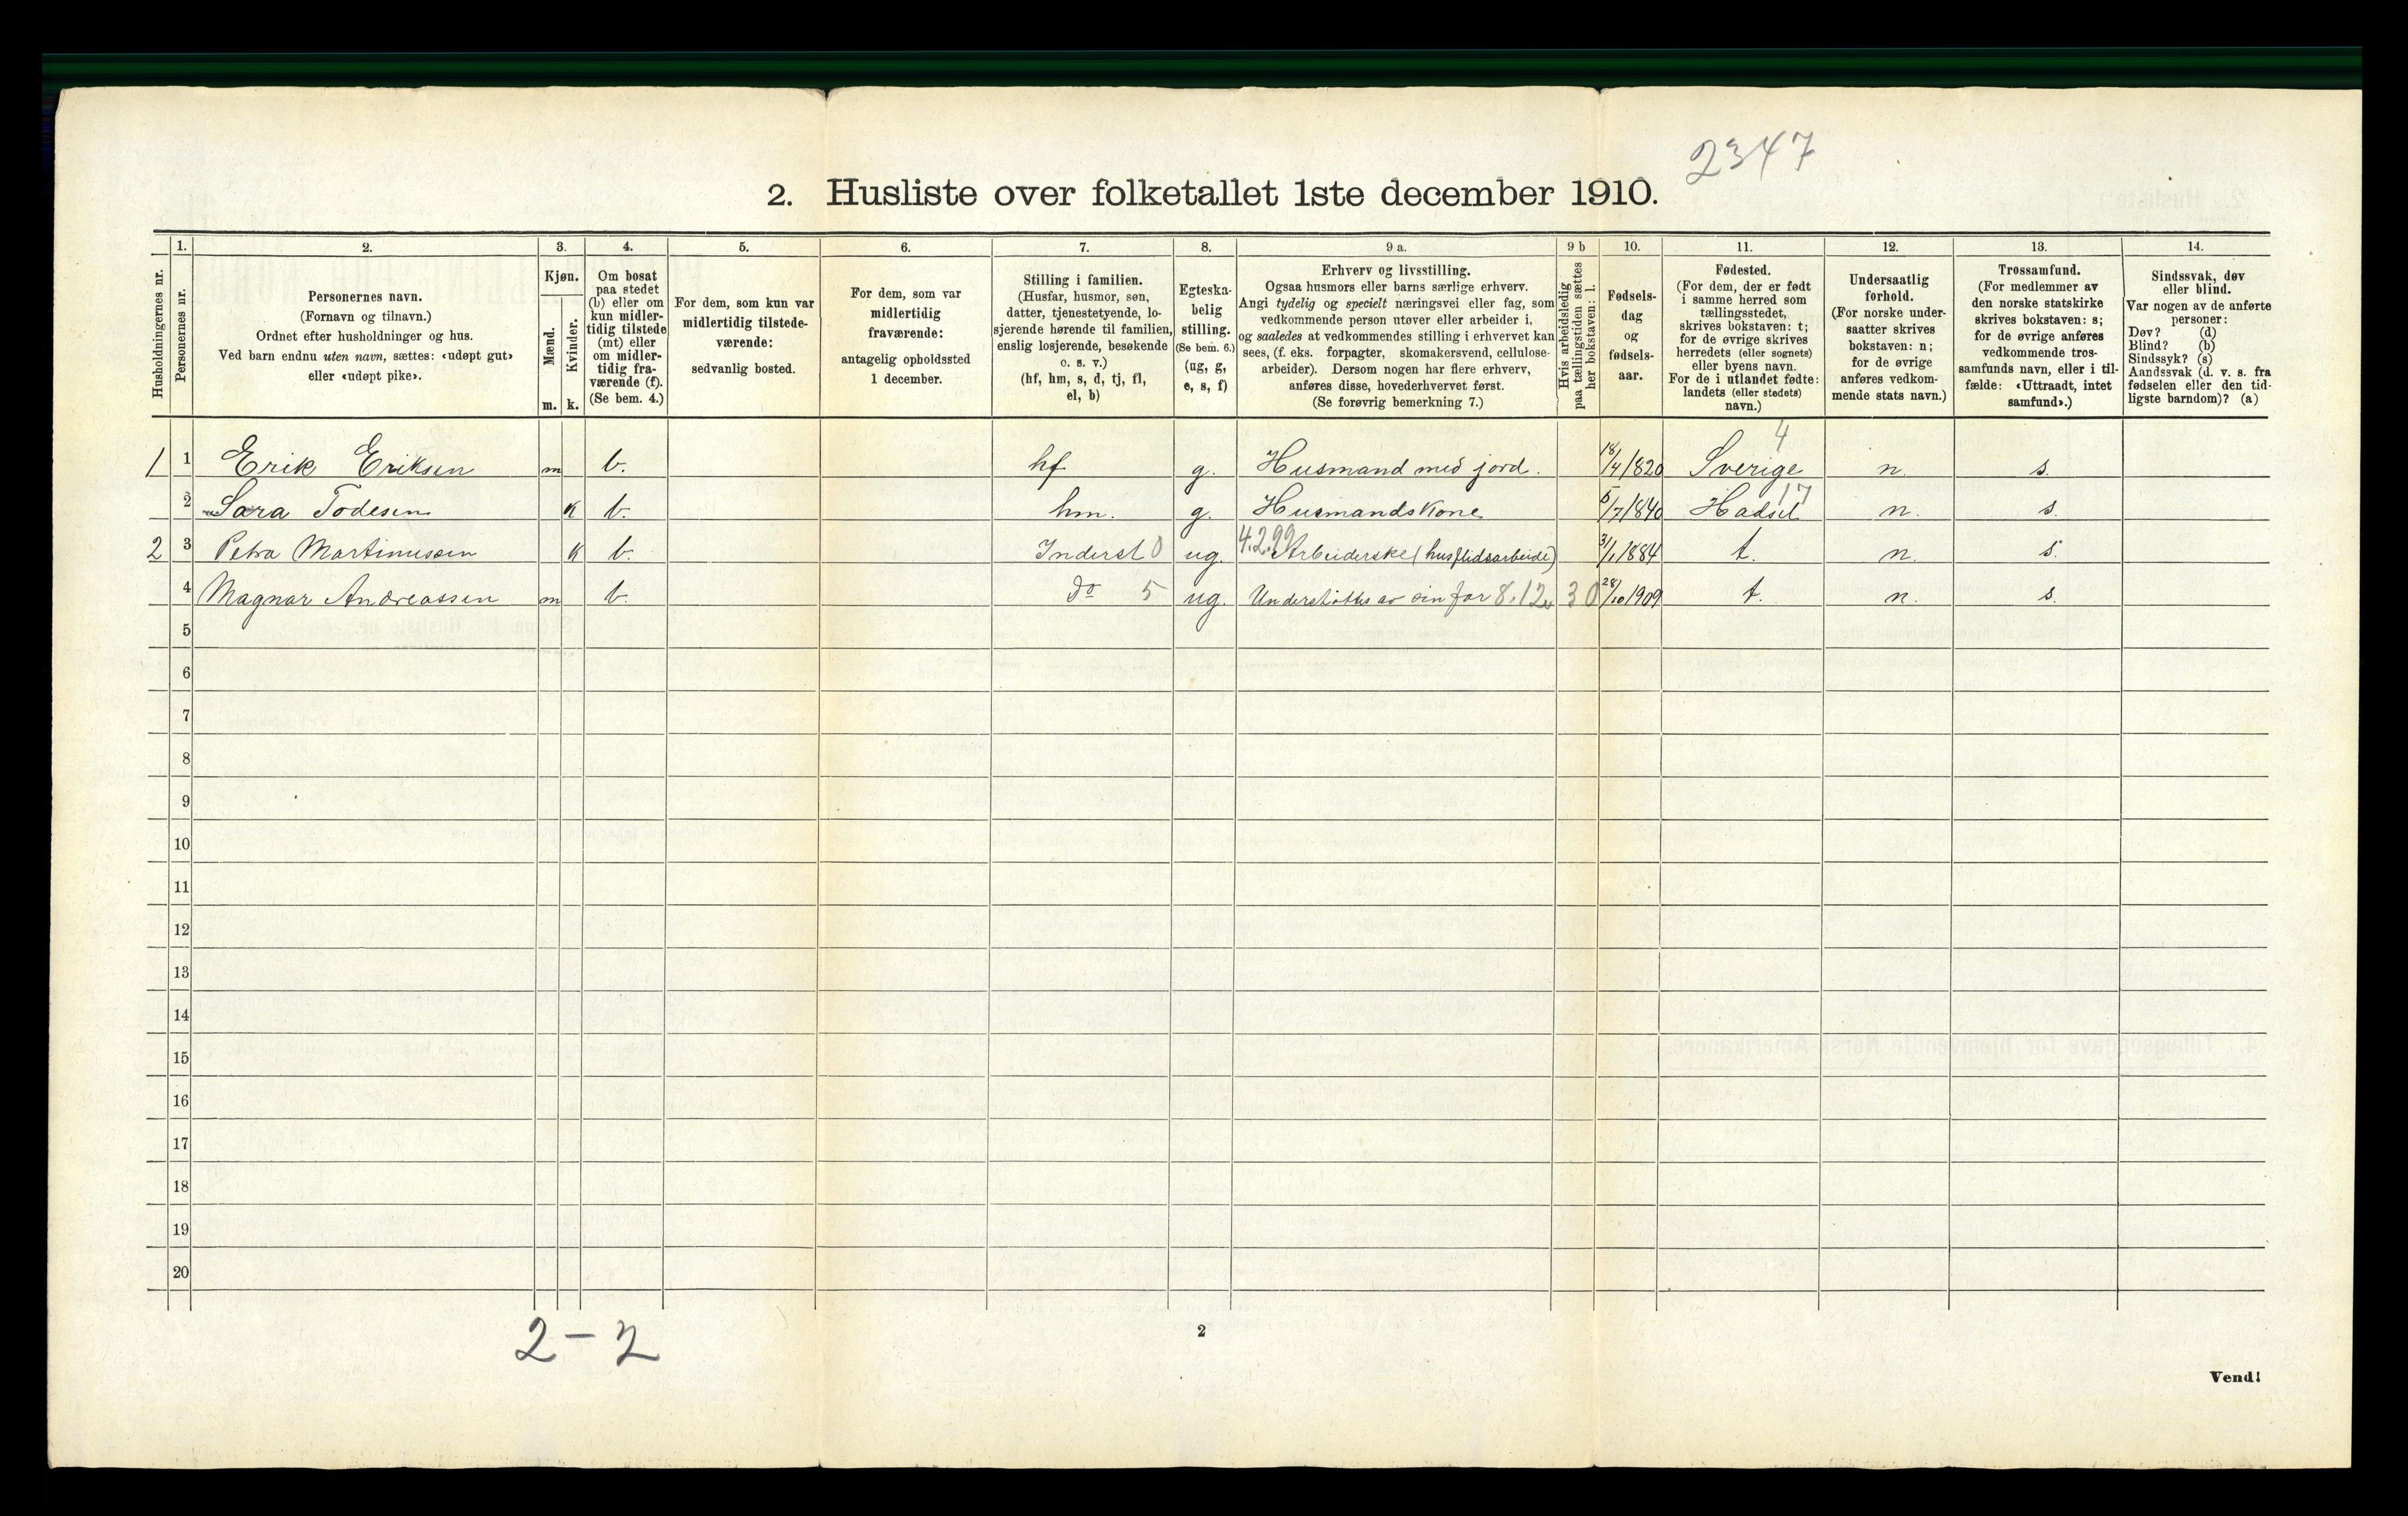 2347
2. Husliste over folketallet 1ste december 1910.
Husholdningernes nr.
1.
Personernes nr.
2.
Personernes navn.
(Fornavn og tilnavn.)
Ordnet efter husholdninger og hus.
Ved barn endnu uten navn, sættes: «udøpt gut»
eller «udøpt pike».
3.
Kjøn.
Mænd.
Kvinder.
m. k.
4.
Om bosat
paa stedet
(b) eller om
kun midler-
tidig tilstede
(mt) eller
om midler-
tidig fra-
værende (f).
(Se bem. 4.)
5.
For dem, som kun var
midlertidig tilstede-
værende:
sedvanlig bosted.
6.
For dem, som var
midlertidig
fraværende:
antagelig opholdssted
1 december.
7.
Stilling i familien.
(Husfar, husmor, søn,
datter, tjenestetyende, lo-
sjerende hørende til familien,
enslig losjerende, besøkende
o. s. v.)
(hf, hm, s, d, tj, fl,
el, b)
8.
Egteska-
belig
stilling.
(Se bem. 6.)
(ug, g,
e, s, f)
9 a.
Erhverv og livsstilling.
Ogsaa husmors eller barns særlige erhverv.
Angi tydelig og specielt næringsvei eller fag, som
vedkommende person utøver eller arbeider i,
og saaledes at vedkommendes stilling i erhvervet kan
sees, (f. eks. forpagter, skomakersvend, cellulose-
arbeider). Dersom nogen har flere erhverv,
anføres disse, hovederhvervet først.
(Se forøvrig bemerkning 7.)
9 b
Hvis arbeidsledig
paa tællingstiden sættes
her bokstaven: l.
10.
Fødsels-
dag
og
fødsels-
aar.
11.
Fødested.
(For dem, der er født
i samme herred som
tællingsstedet,
skrives bokstaven: t;
for de øvrige skrives
herredets (eller sognets)
eller byens navn.
For de i utlandet fødte:
landets (eller stedets)
navn.)
12.
Undersaatlig
forhold.
(For norske under-
saatter skrives
bokstaven: n;
for de øvrige
anføres vedkom-
mende stats navn.)
13.
Trossamfund.
(For medlemmer av
den norske statskirke
skrives bokstaven: s;
for de øvrige anføres
vedkommende tros-
samfunds navn, eller i til-
fælde: «Uttraadt, intet
samfund».)
14.
Sindssvak, døv
eller blind.
Var nogen av de anførte
personer:
Døv? (d)
Blind? (b)
Sindssyk? (s)
Aandssvak (d. v. s. fra
fødselen eller den tid-
ligste barndom)? (a)
1 1 Erik Eriksen m b. hf g. Husmand med jord. 18/4 1820 Sverige 4 n. s.
2 Sara Todesen k b. hm. g. Husmandskone 5/7 1840 Hadsel 17 n. s.
2 3 Petra Martinussen k b. Inderst 0 ug. 4.2.99 Arbeiderske (husflidsarbeide) 31/1 1884 t. n. s.
4 Magnar Andreassen m b. do 5 ug. Understöttes av sin far 8.12. 30 28/10 1909 t. n. s.
5
6
7
8
9
10
11
12
13
14
15
16
17
18
19
20
2 – 2
2
Vend!